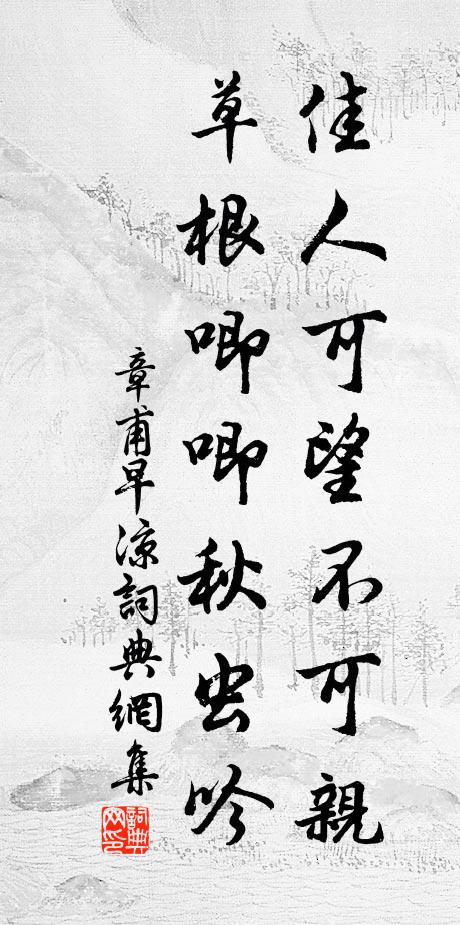 佳人可望不可親
草根唧唧秋虫吟
章甫早凉詞典網集
詞典网印